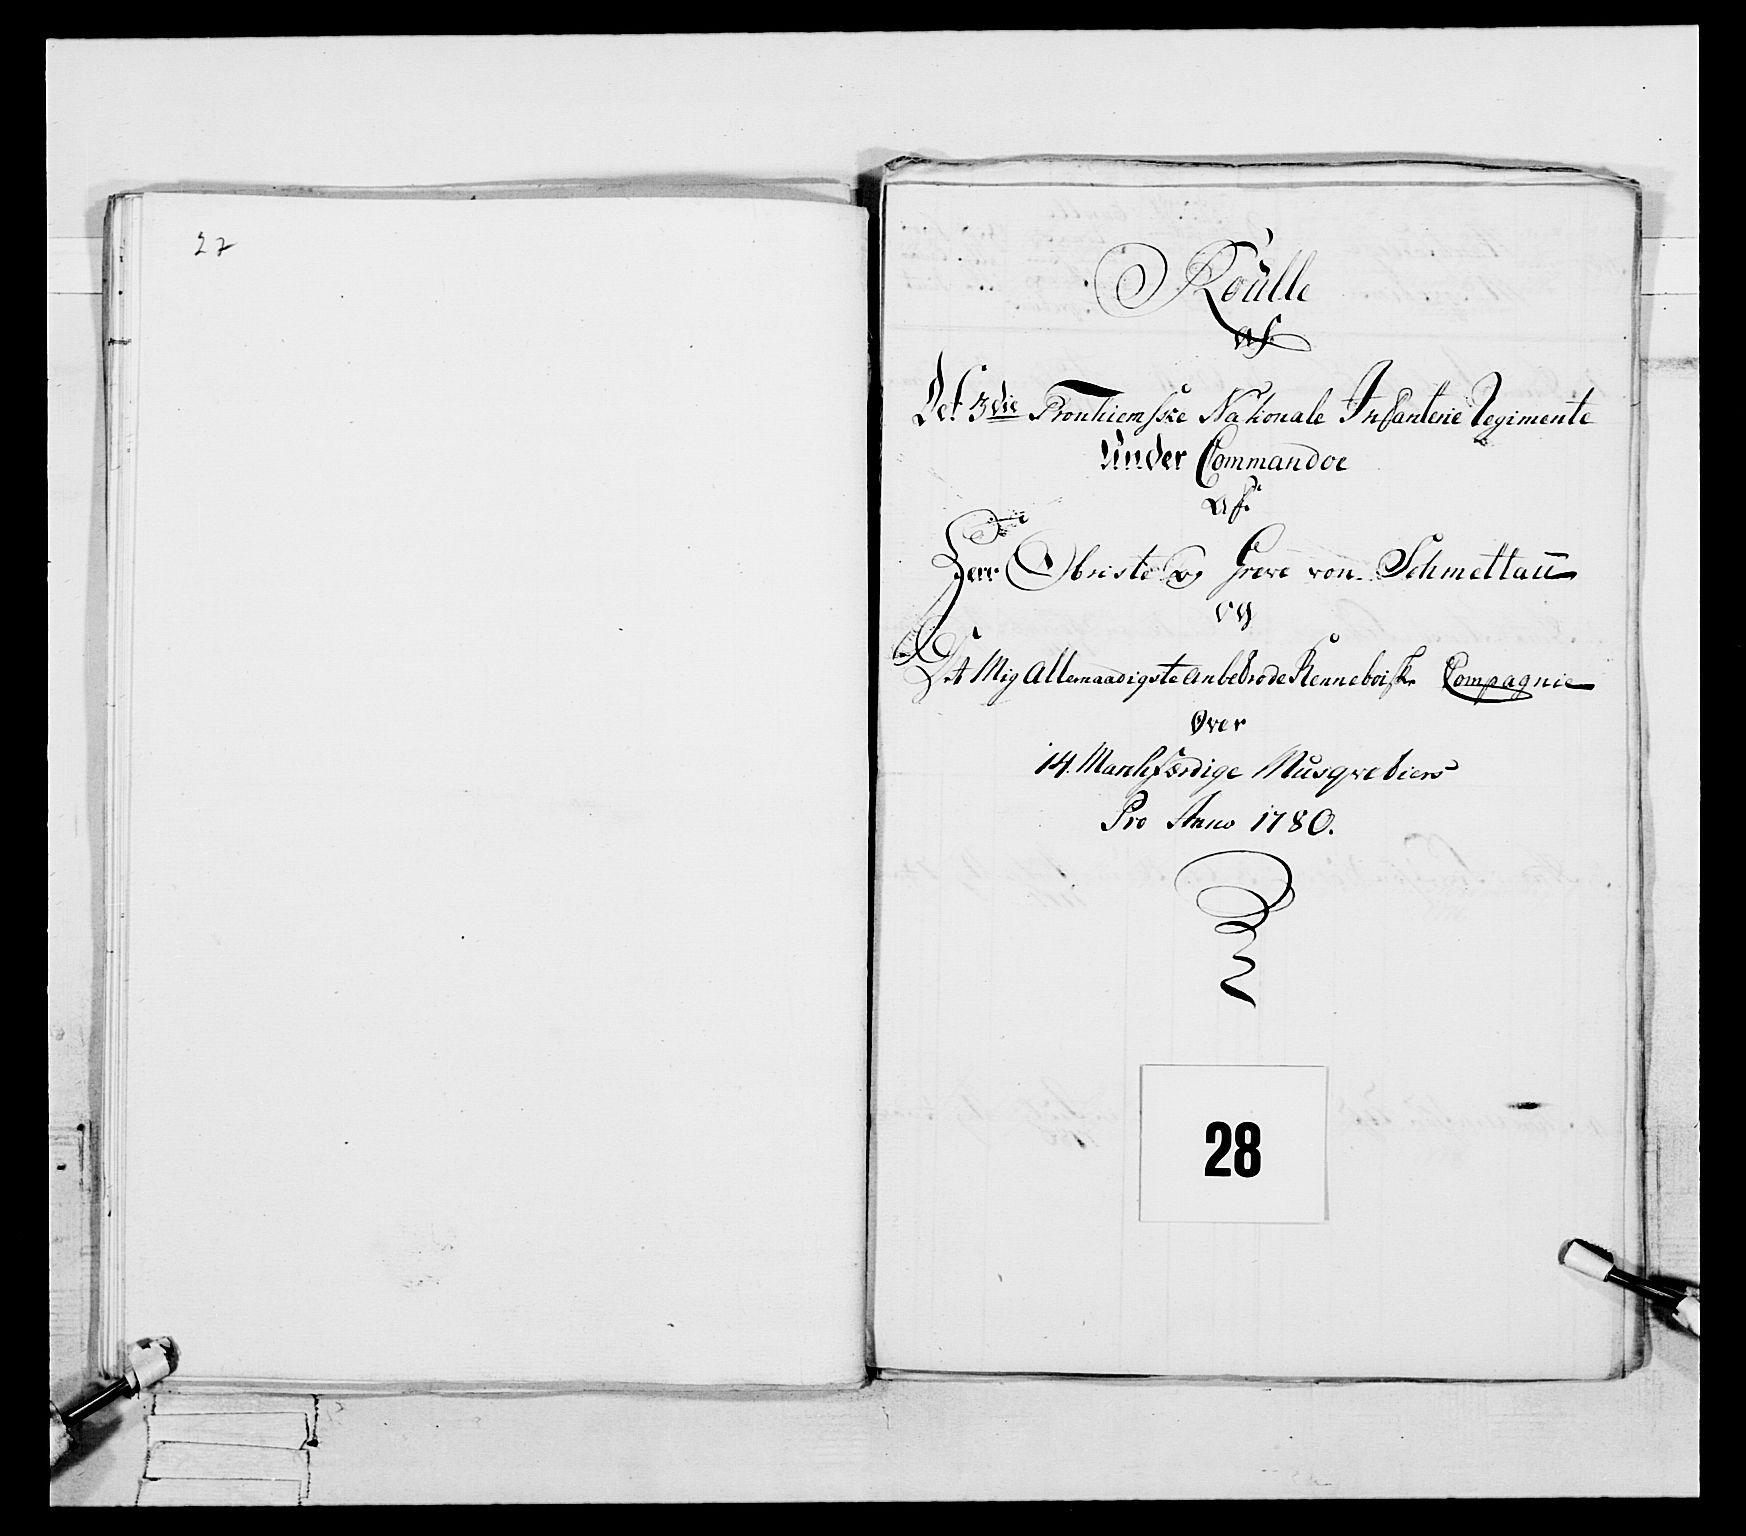 27
Roülle
af
Det 3die Tronhiemske Nationale Infanterie Regimente
Under Commandoe
af
Herr Obriste og Greve von Schmettaü
og
Det Mig Allernaadigste anbetrode Renneboiske Compagnie
Over
14. Marchfærdige Musqvetiers
Pro Anno 1780.
28